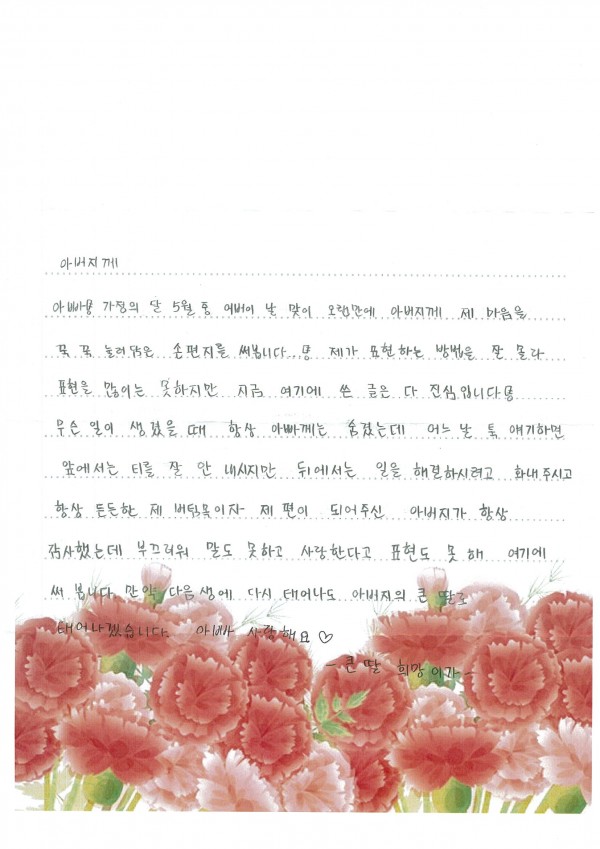 아버지께
아빠용 가정의 달 5월 중 어버이 날 맞이 오랜만에 아버지께 제 마음을
꾹 꾹 눌러담은 손편지를 써봅니다..용 제가 표현하는 방법을 잘 몰라
표현을 많이는 못하지만 지금 여기에 쓴 글은 다 진심입니다용
무슨 일이 생겼을 때 항상 아빠께는 숨겼는데 어느 날 툭 얘기하면
앞에서는 티를 잘 안 내시지만 뒤에서는 일을 해결하시려고 화내주시고
항상 든든한 제 버팀목이자 제 편이 되어주신 아버지가 항상
감사했는데 부끄러워 말도 못하고 사랑한다고 표현도 못 해 여기에
써 봅니다. 만약 다음 생에 다시 태어나도 아버지의 큰 딸로
태어나겠습니다. 아빠 사랑해요♡
- 큰 딸 희망이가 -